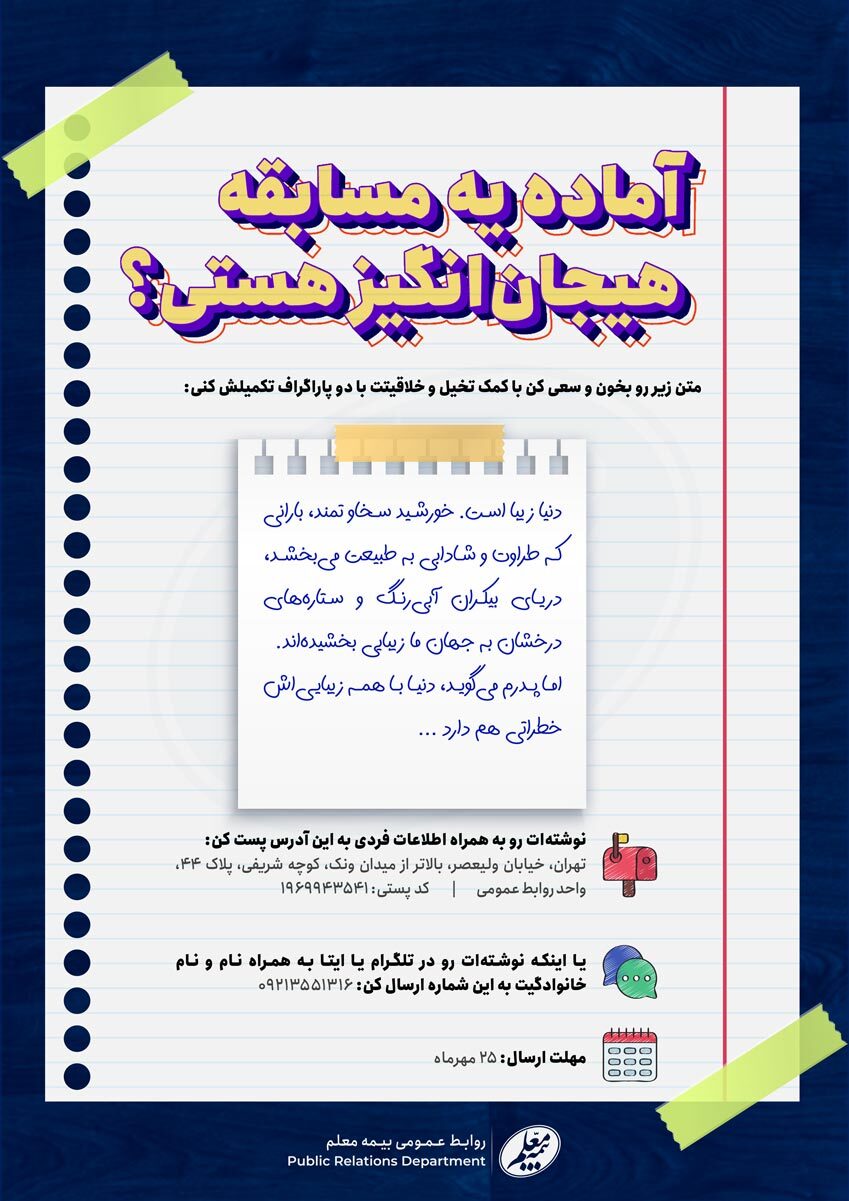 آماده یه مسابقه
هیجان‌انگیز هستی؟
متن زیر رو بخون و سعی کن با کمک تخیل و خلاقیتت با دو پاراگراف تکمیلش کنی:
دنیا زیبا است. خورشید سخاوتمند، بارانی
که طراوت و شادابی به طبیعت می‌بخشد،
دریای بیکران آبی‌رنگ و ستاره‌های
درخشان به جهان ما زیبایی بخشیده‌اند.
اما پدرم می‌گوید، دنیا با همه زیبایی‌اش
خطراتی هم دارد ...
نوشته‌ات رو به همراه اطلاعات فردی به این آدرس پست کن:
تهران، خیابان ولیعصر، بالاتر از میدان ونک، کوچه شریفی، پلاک ۴۴،
واحد روابط عمومی | کد پستی: ۱۹۶۹۹۴۳۵۴۱
یا اینکه نوشته‌ات رو در تلگرام یا ایتا به همراه نام و نام
خانوادگیت به این شماره ارسال کن: ۰۹۲۱۳۵۵۱۳۱۶
مهلت ارسال: ۲۵ مهرماه
روابط عمومی بیمه معلم
Public Relations Department
بیمه معلم